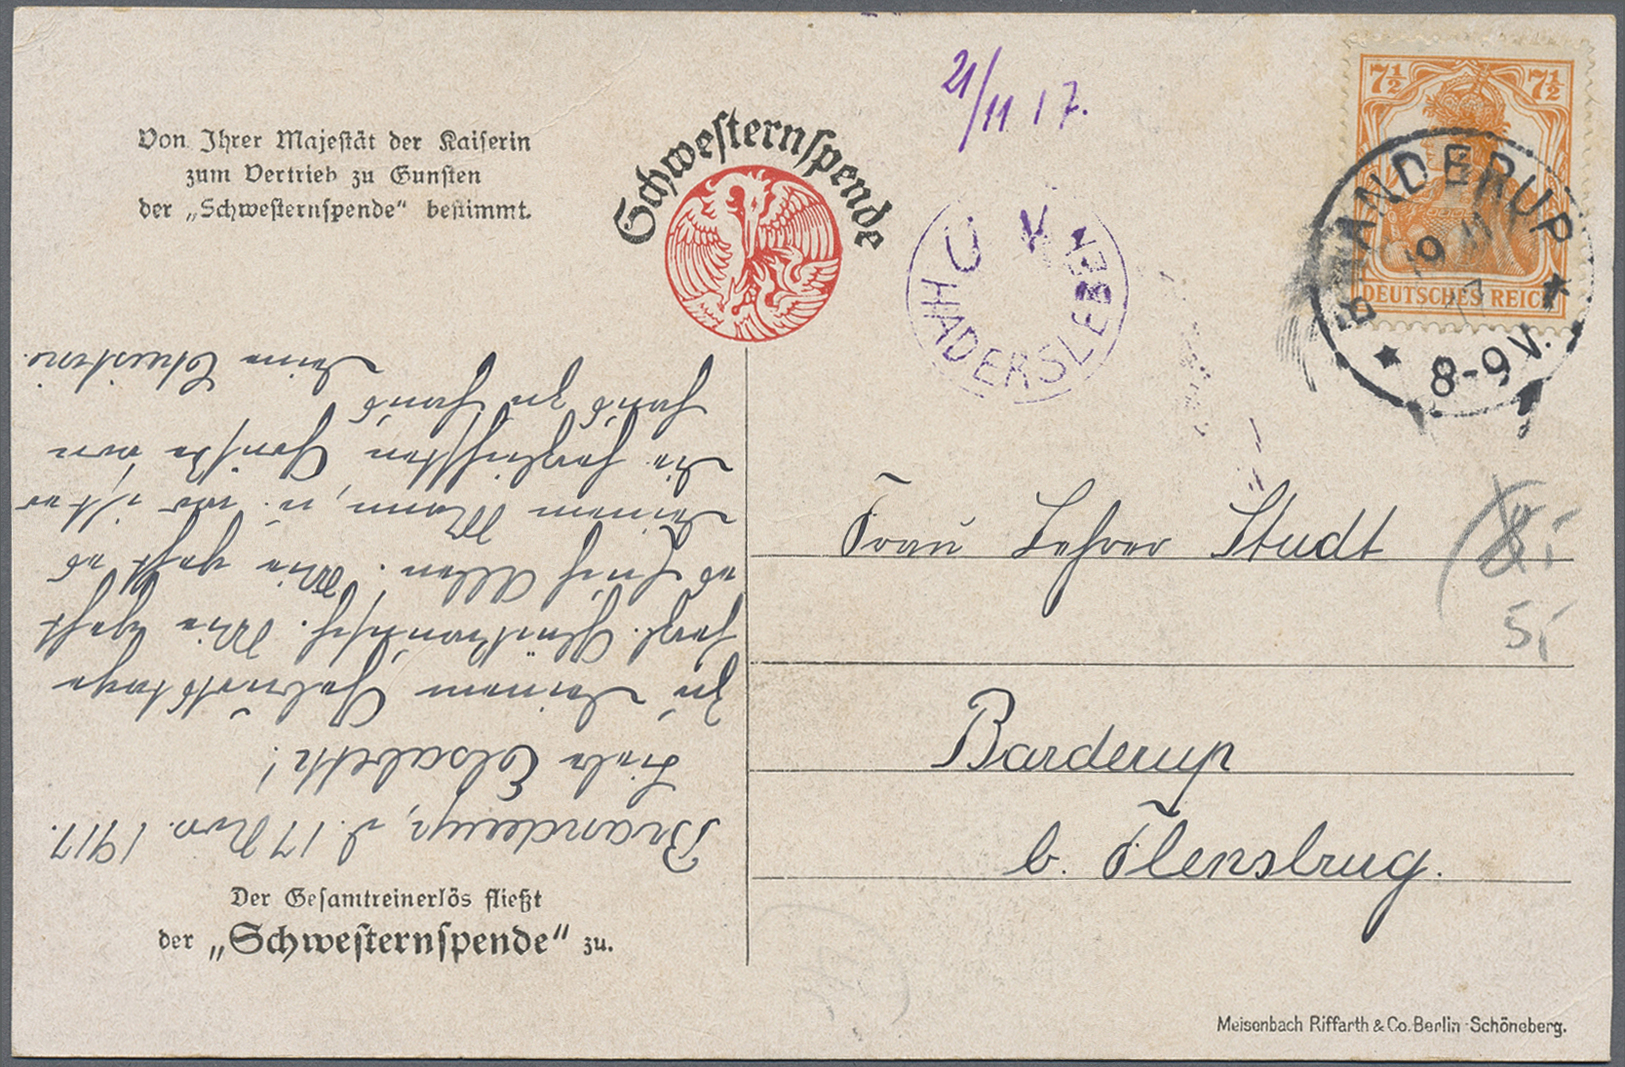 Von Ihrer Majestät der Kaiserin
zum Vertrieb zu Gunsten
der „Schwesternspende“ bestimmt.
Schwesternspende
21/11 17.
Ü K
HADERSLEBEN
7½ 7½
DEUTSCHES REICH
BRANDERUP
19 11
17
8-9V.
Frau Lehrer Studt
Barderup
b. Flensbrug.
8,-
5,-
Branderup, d. 17 Nov. 1917.
Liebe Elsabeth!
Zu Deinem Geburtstage
herzl. Glückwunsch. Wie geht
es Euch Allen. Wie geht es
Deinem Mann, u. wo ist er
Die herzlichsten Grüße von
Haus zu Haus
Deine Christine
Der Gesamtreinerlös fließt
der „Schwesternspende“ zu.
Meisenbach Riffarth & Co. Berlin-Schöneberg.